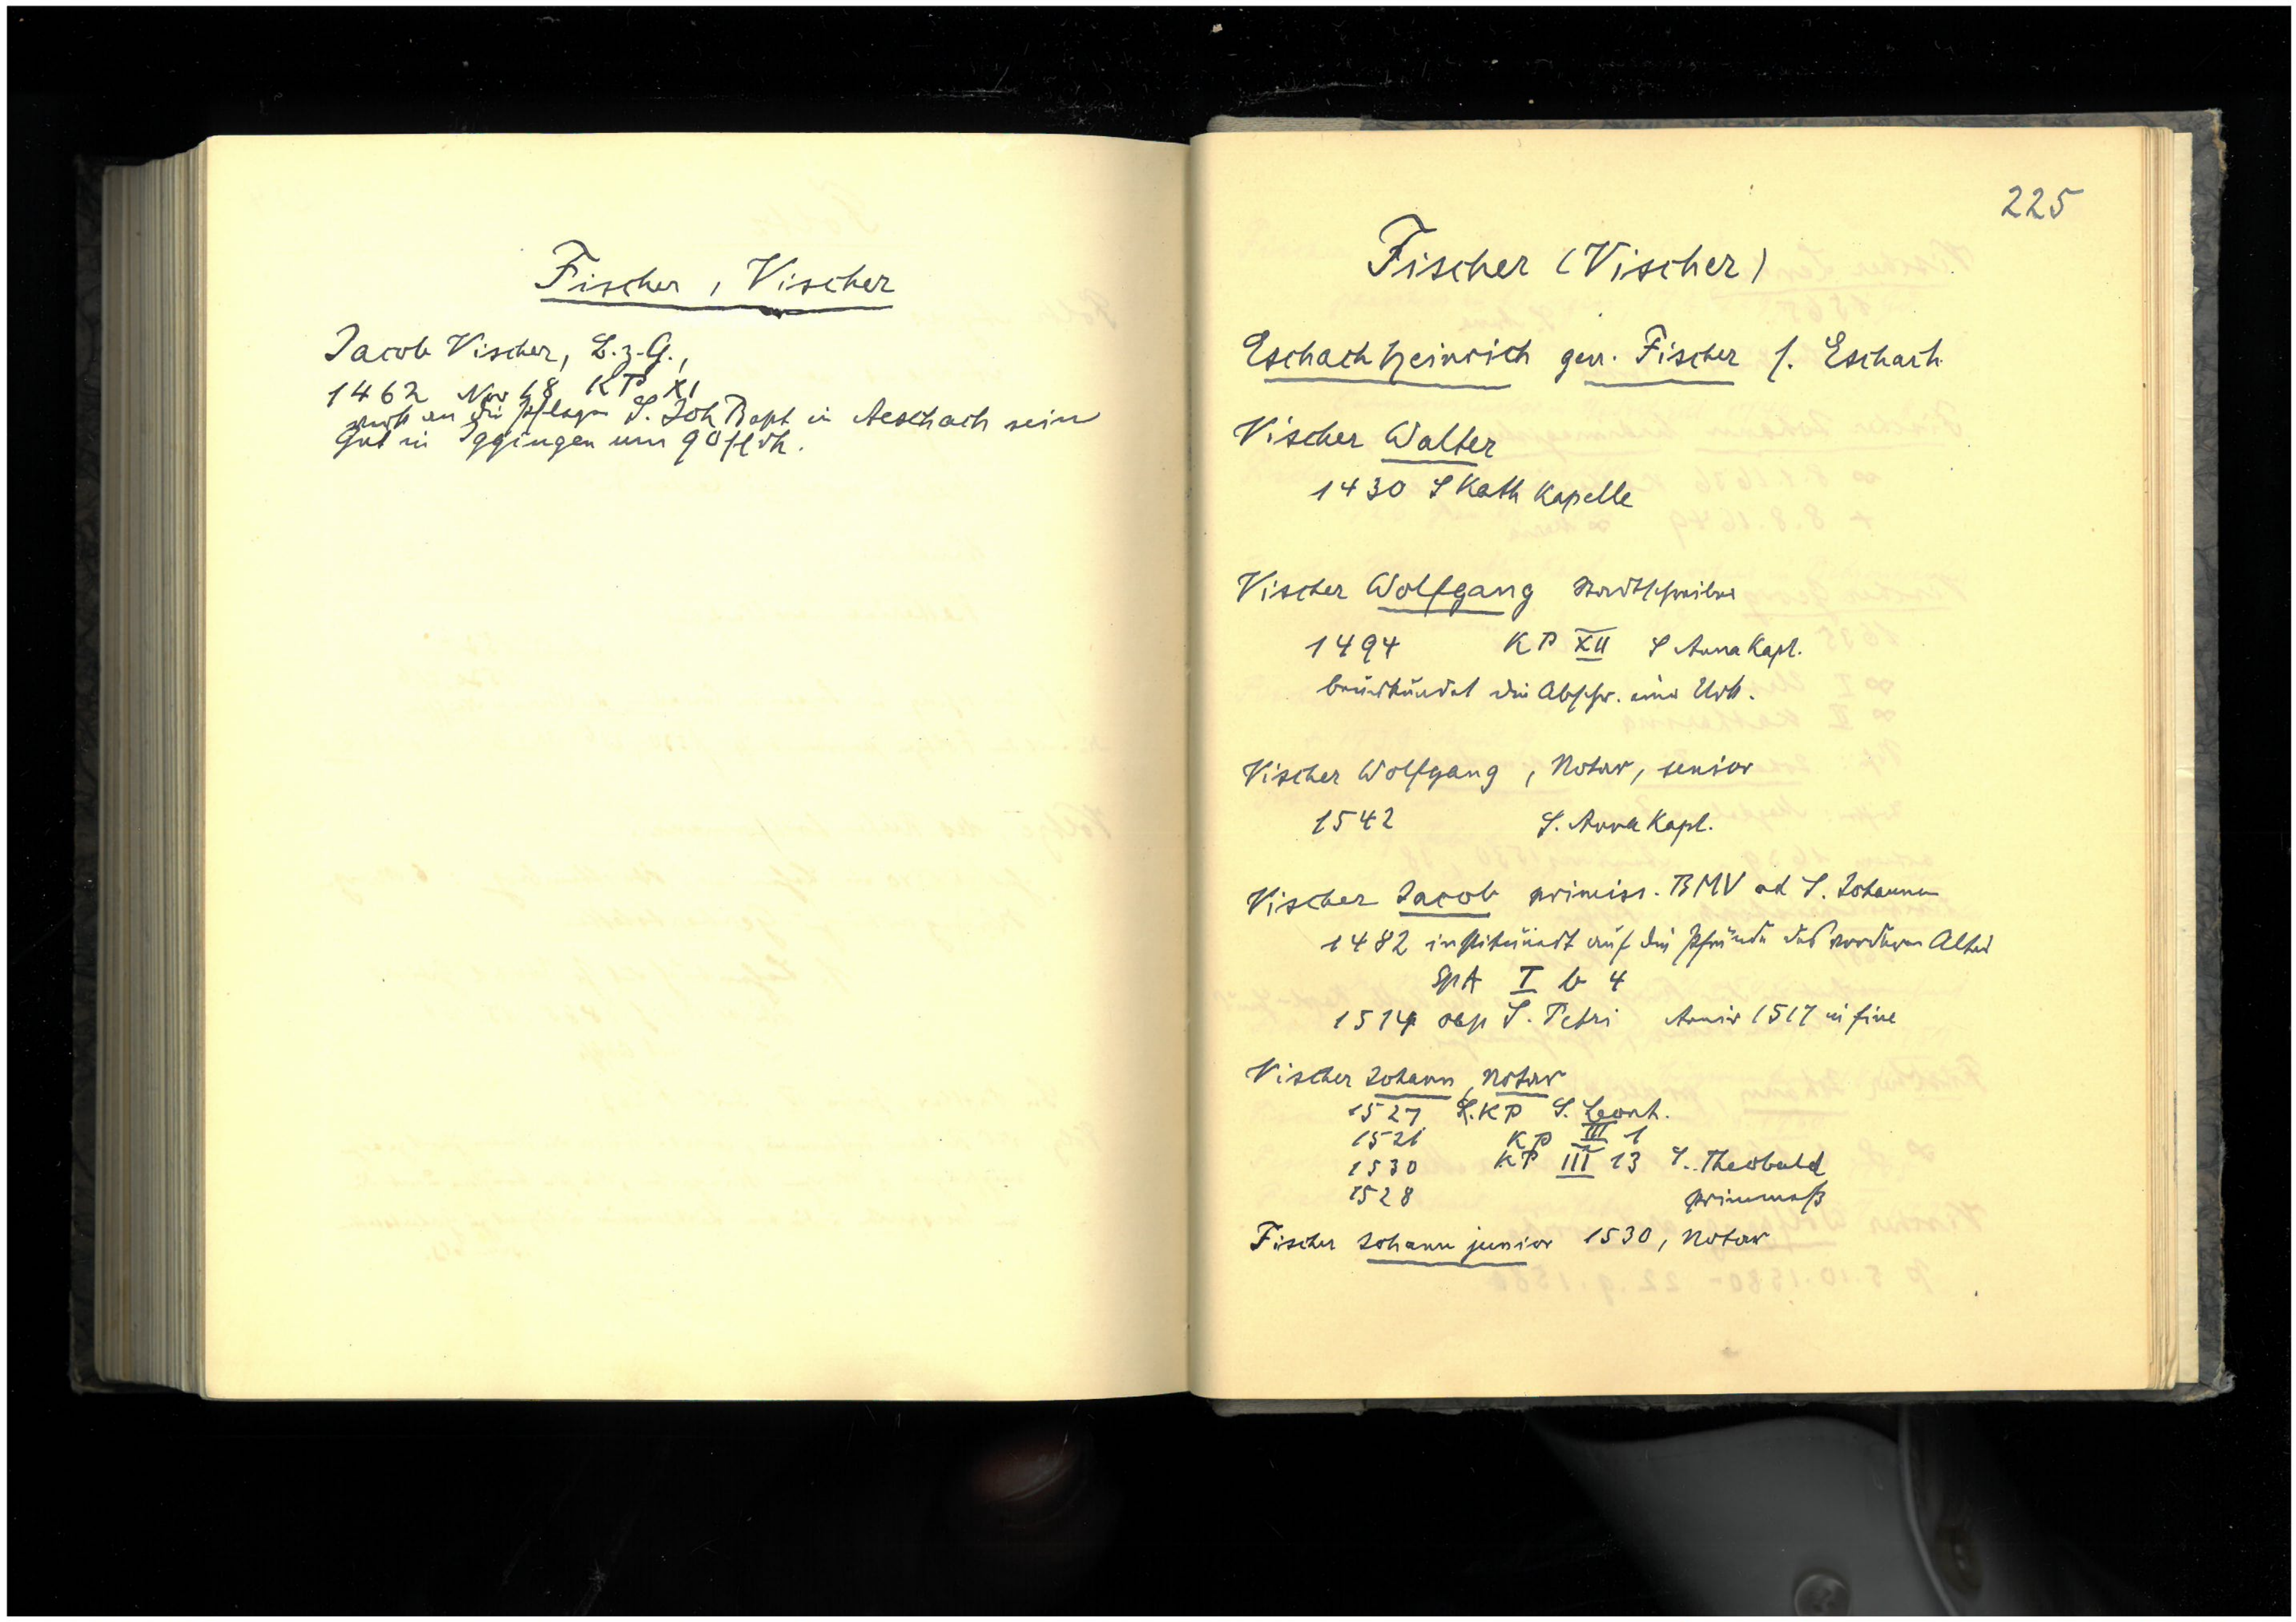 Fischer, Vischer
Jacob Vischer, B.z.G.,
1462 Nov 18 KP XI
an die Pflege S. Joh Bapt in Aeschach sein
Gut in Iggingen um 90 fl rh.
225
Fischer (Vischer)
Eschach Heinrich gen. Fischer s. Eschach
Vischer Walter
1430 S Kath Kapelle
Vischer Wolfgang Stadtschreiber
1494 KP XII S Anna Kapl.
beurkundet die Abschr. einer Urk.
Vischer Wolfgang, Notar, senior
1542 S. Anna Kapl.
Vischer Jacob primiss. BMV ad S. Johannem
1482 institüiert auf die Pfründe des vorderen Altars
SpA I b 4
1514 S. Petri 1517 in fine
Vischer Johann, Notar
1527 KP S. Leonh.
1521 KP III 1
1530 KP III 13 S. Theobald
1528 primmess
Fischer Johann junior 1530, Notar